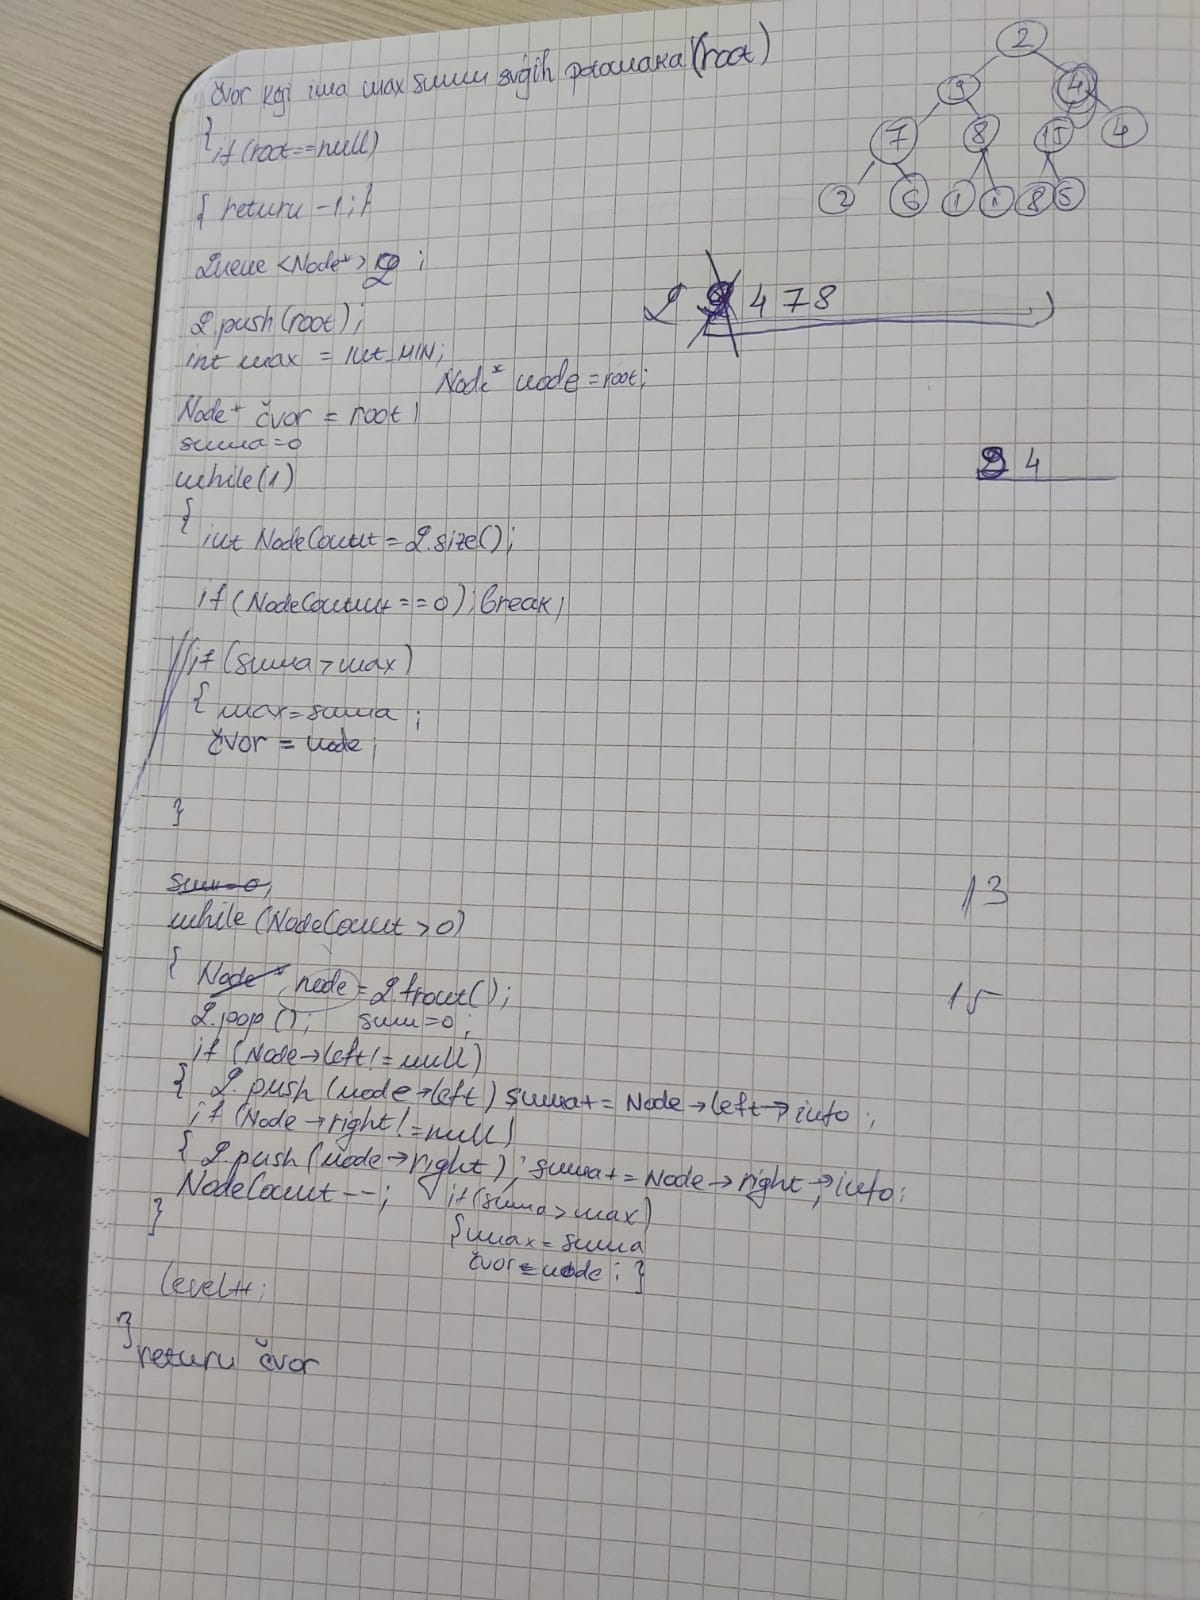 čvor koji ima max sumu svojih potomaka (root)
{ if (root==null)
{ return -1; }
Queue <Node*> Q ;
Q.push(root);
int max = INT_MIN;
Node* node = root;
Node* čvor = root;
suma=0
while(1)
{
int NodeCount = Q.size();
if (NodeCount == 0); break;
if (suma > max)
{ max = suma ;
čvor = node ;
}
sum=0;
while (NodeCount > 0)
{ Node* node = Q.front();
Q.pop(); sum=0;
if (Node→left != null)
{ Q.push(node→left) suma+= Node→left→info ;
if (Node→right != null)
{ Q.push(node→right) ; suma+= Node→right→info;
NodeCount--; if(suma>max)
{max=suma
čvor=node ; }
}
level++;
}
return čvor
2
9 4
7 8 15 4
2 6 1 1 8 5
2 9 4 7 8
9 4
13
15